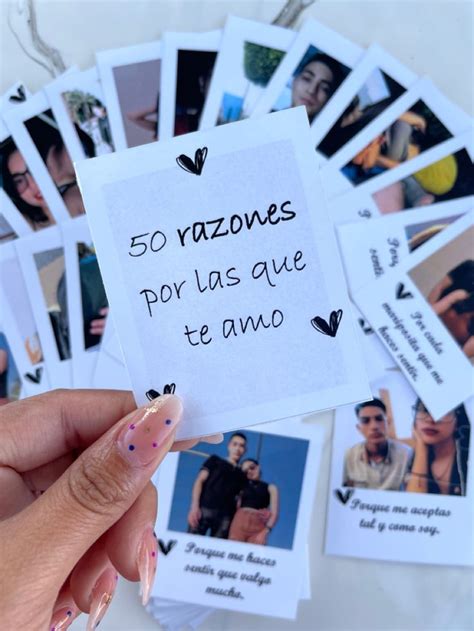 50 razones
por las que
te amo
Por
sentir
Por cada
mariposita que me
haces sentir.
Porque me aceptas
tal y como soy.
Porque me haces
sentir que valgo
mucho.